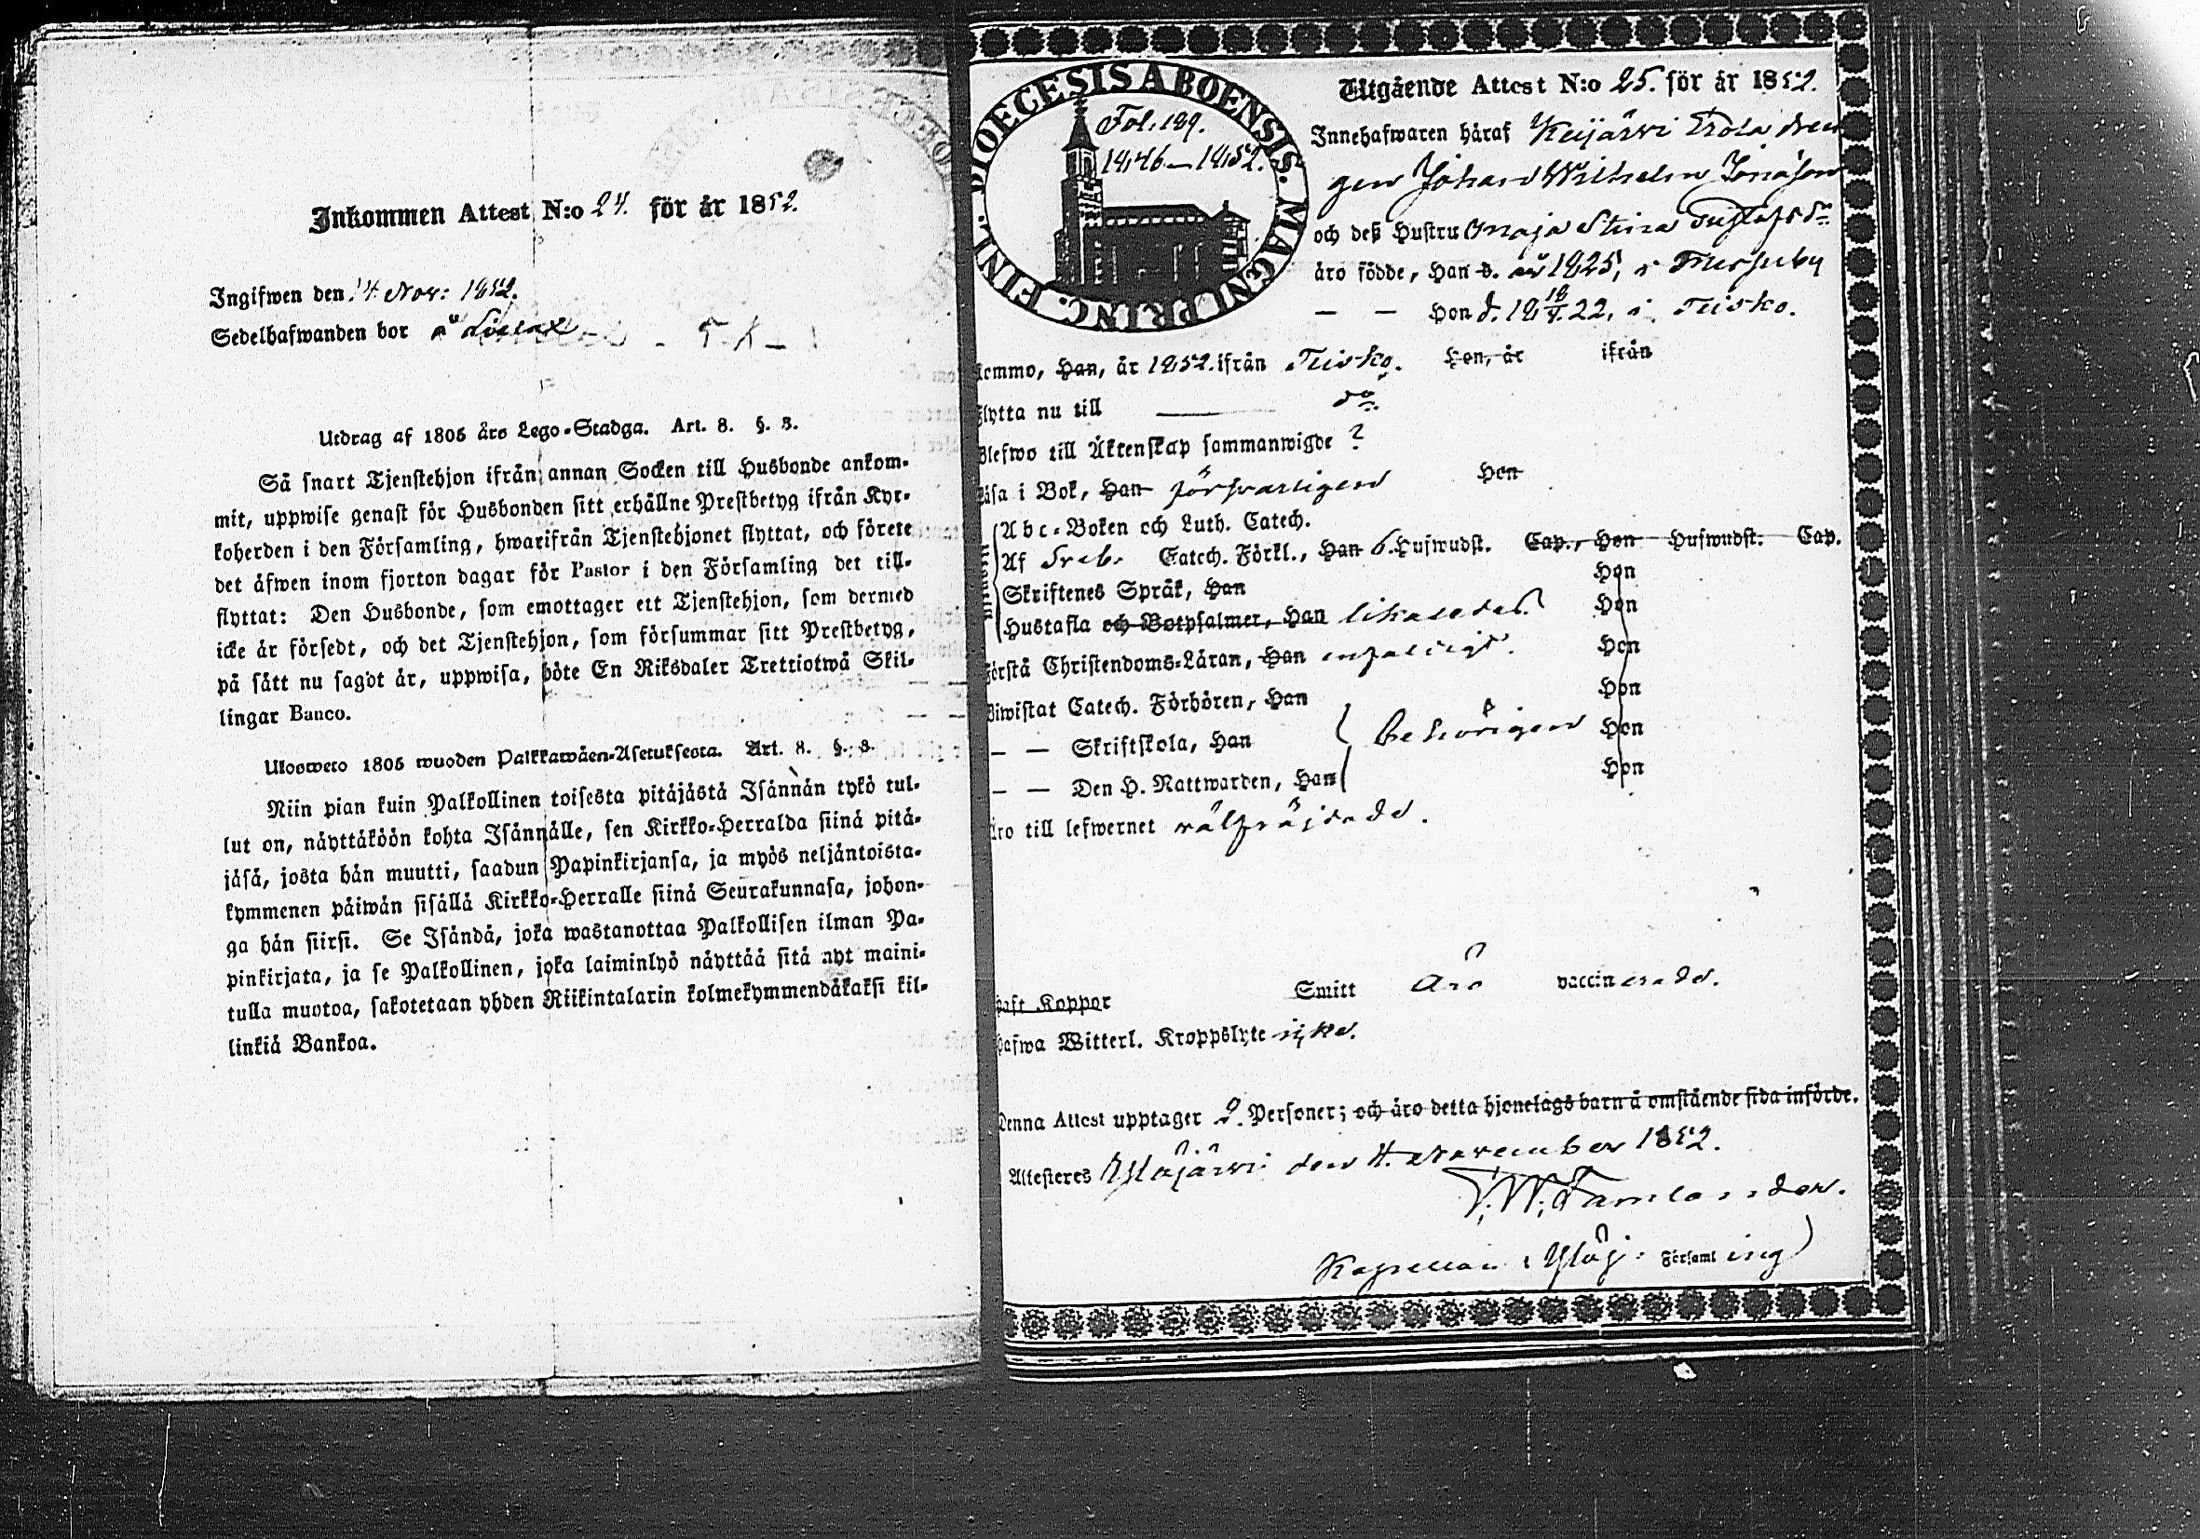 Inkommen Attest N:o 24. för år 1852.
Ingifwen den 14 Nov: 1852.
Sedelhafwanden bor å
Utdrag af 1805 års Lego-Stadga. Art. 8. §. 3.
Så snart Tjenstehjon ifrån annan Socken till Husbonde ankom-
mit, uppwise genast för Husbonden sitt erhållne Prestbetyg ifrån Kyr-
koherden i den Församling, hwarifrån Tjenstehjonet flyttat, och förete
det äfwen inom fjorton dagar för Pastor i den Församling det till-
flyttat: Den Husbonde, som emottager ett Tjenstehjon, som dermed
icke är försedt, och det Tjenstehjon, som försummar sitt Prestbetyg,
på sätt nu sagdt är, uppwisa, böte En Riksdaler Trettiotwå Skil-
lingar Banco.
Ulosweto 1805 wuoden Palkkawäen-Asetuksesta. Art. 8. §. 3.
Niin pian kuin Palkollinen toisesta pitäjästä Isännän tykö tul-
lut on, näyttäköön kohta Isännälle, sen Kirkko-Herralda siinä pitä-
jäsä, josta hän muutti, saadun Papinkirjansa, ja myös neljäntoista-
kymmenen päiwän sisällä Kirkko-Herralle siinä Seurakunnasa, johon-
ga hän siirsi. Se Isändä, joka wastanottaa Palkollisen ilman Pa-
pinkirjata, ja se Palkollinen, joka laiminlyö näyttää sitä nyt maini-
tulla muotoa, sakotetaan yhden Riikintalarin kolmekymmendäkaksi kil-
linkiä Bankoa.
DIOECESIS ABOENSIS. MAGNI PRINC. FINL.
Fol. 189.
1846-1852.
Utgående Attest N:o 25. för år 1852.
Innehafwaren häraf Keijärwi Trola dren
gen Johan Wilhelm Jonasson
och deß Hustru Maja Stina Gustafsdr
äro födde, Han d. år 1825, i
— — Hon d. 18 18/9. 22, i Teisko.
Kommo, Han, år 1852. ifrån Teisko. Hon, år ifrån
Flytta nu till do
Blefwo till Äktenskap sammanwigde ?
Läsa i Bok, Han försvarligen Hon
Abc-Boken och Luth. Catech.
Af Sveb. Catech. Förkl., Han 6. Hufwudst. Cap., Hon Hufwudst. Cap.
Skriftenes Språk, Han Hon
Hustafla och Botpsalmer, Han likaledes Hon
Förstå Christendoms-Läran, Han enfaldigt. Hon
Biwistat Catech. Förhören, Han Hon
— — Skriftskola, Han behörigen Hon
— — Den H. Nattwarden, Han Hon
Äro till lefwernet välfräjdade.
Haft Koppor Smitt Äro vaccinerade.
Hafwa Witterl. Kroppslyte icke.
Denna Attest upptager 2. Personer; och äro detta hjonelags barn å omstående sida införde.
Attesteres Ylöjärvi den 4. November 1852.
Kapellan i Ylöj: Församling